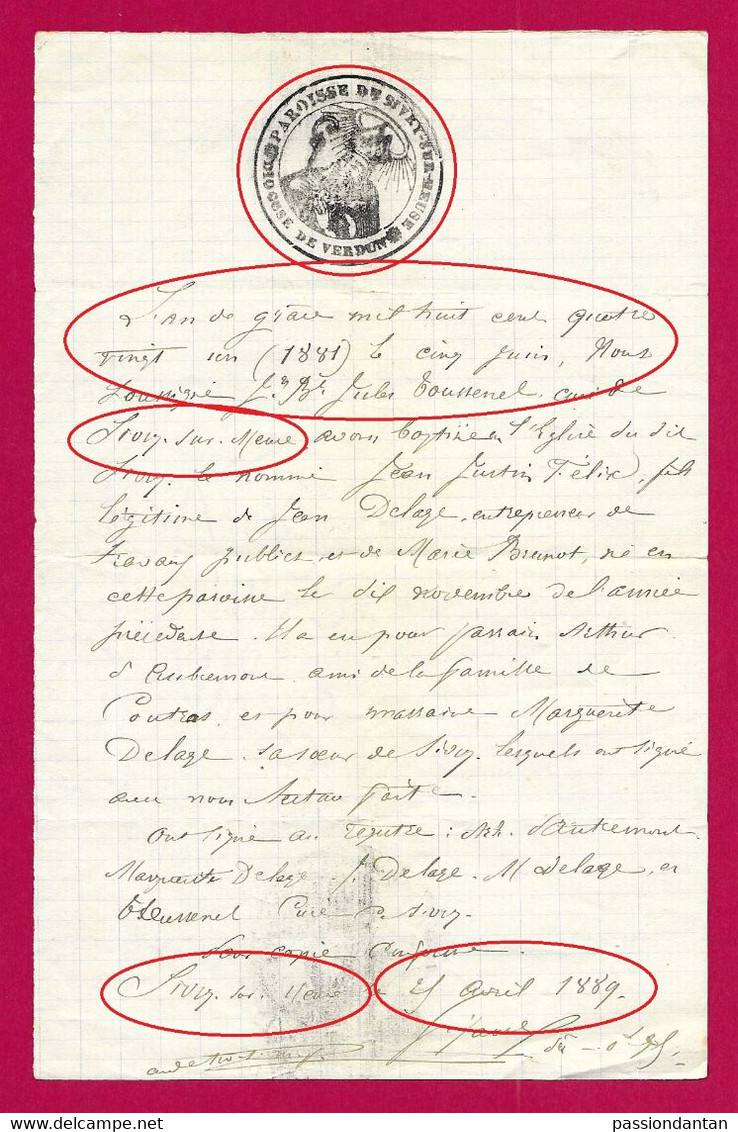 PAROISSE DE SIVRY-SUR-MEUSE
DIOCÈSE DE VERDUN
L'an de grâce mil huit cent quatre
vingt un (1881) le cinq juin, Nous
soussigné J.n B.te Jules Toussenel, curé de
Sivry-sur-Meuse avons baptisé en l'Eglise du dit
Sivry le nommé Jean Justin Félix, fils
légitime de Jean Delage, entrepreneur de
travaux publics et de Marie Brunot, né en
cette paroisse le dix novembre de l'année
précédente. Il a eu pour parrain Arthur
d'Autremont ami de la famille de
Coutras, et pour marraine Marguerite
Delage sa sœur de Sivry, lesquels ont signé
avec nous lecture faite.
Ont signé au registre : Arth. d'Autremont
Marguerite Delage J. Delage. M Delage, et
Toussenel Curé de Sivry
Pour copie conforme.
Sivry-sur-Meuse le 25 avril 1889.
passiondantan